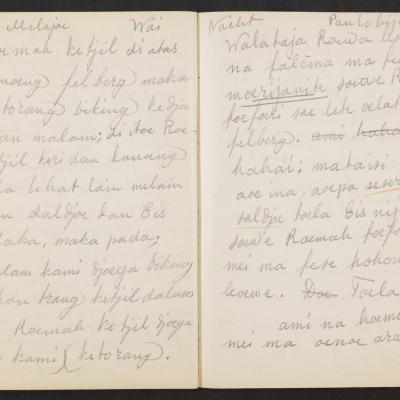 Melajoe Wai
oemah ketjil di atas
noeng felberg maka
ketorang biking kedja
an malam; di itoe Roe-
tjil kiri dan kanang
a lihat lain melain
n saldjoe dan Eis
aka, maka pada;
lam kami djoega biking
hon trang ketjil dalam
Roemah ketjil djoega
kami (ketorang).
Nacht
Walataja Roewa
na falcina ma fe
marijanite soewe R
foefoei sae lete oelat
felberg. ami haha
hahai; mataisi
aoe ina, aoepa seser
saldjoe toela Eis nij
soewe Roemah foefo
mei ma fese hohon
koewe. Doe Toela
ami na hoeme
mei ma oenoe ara